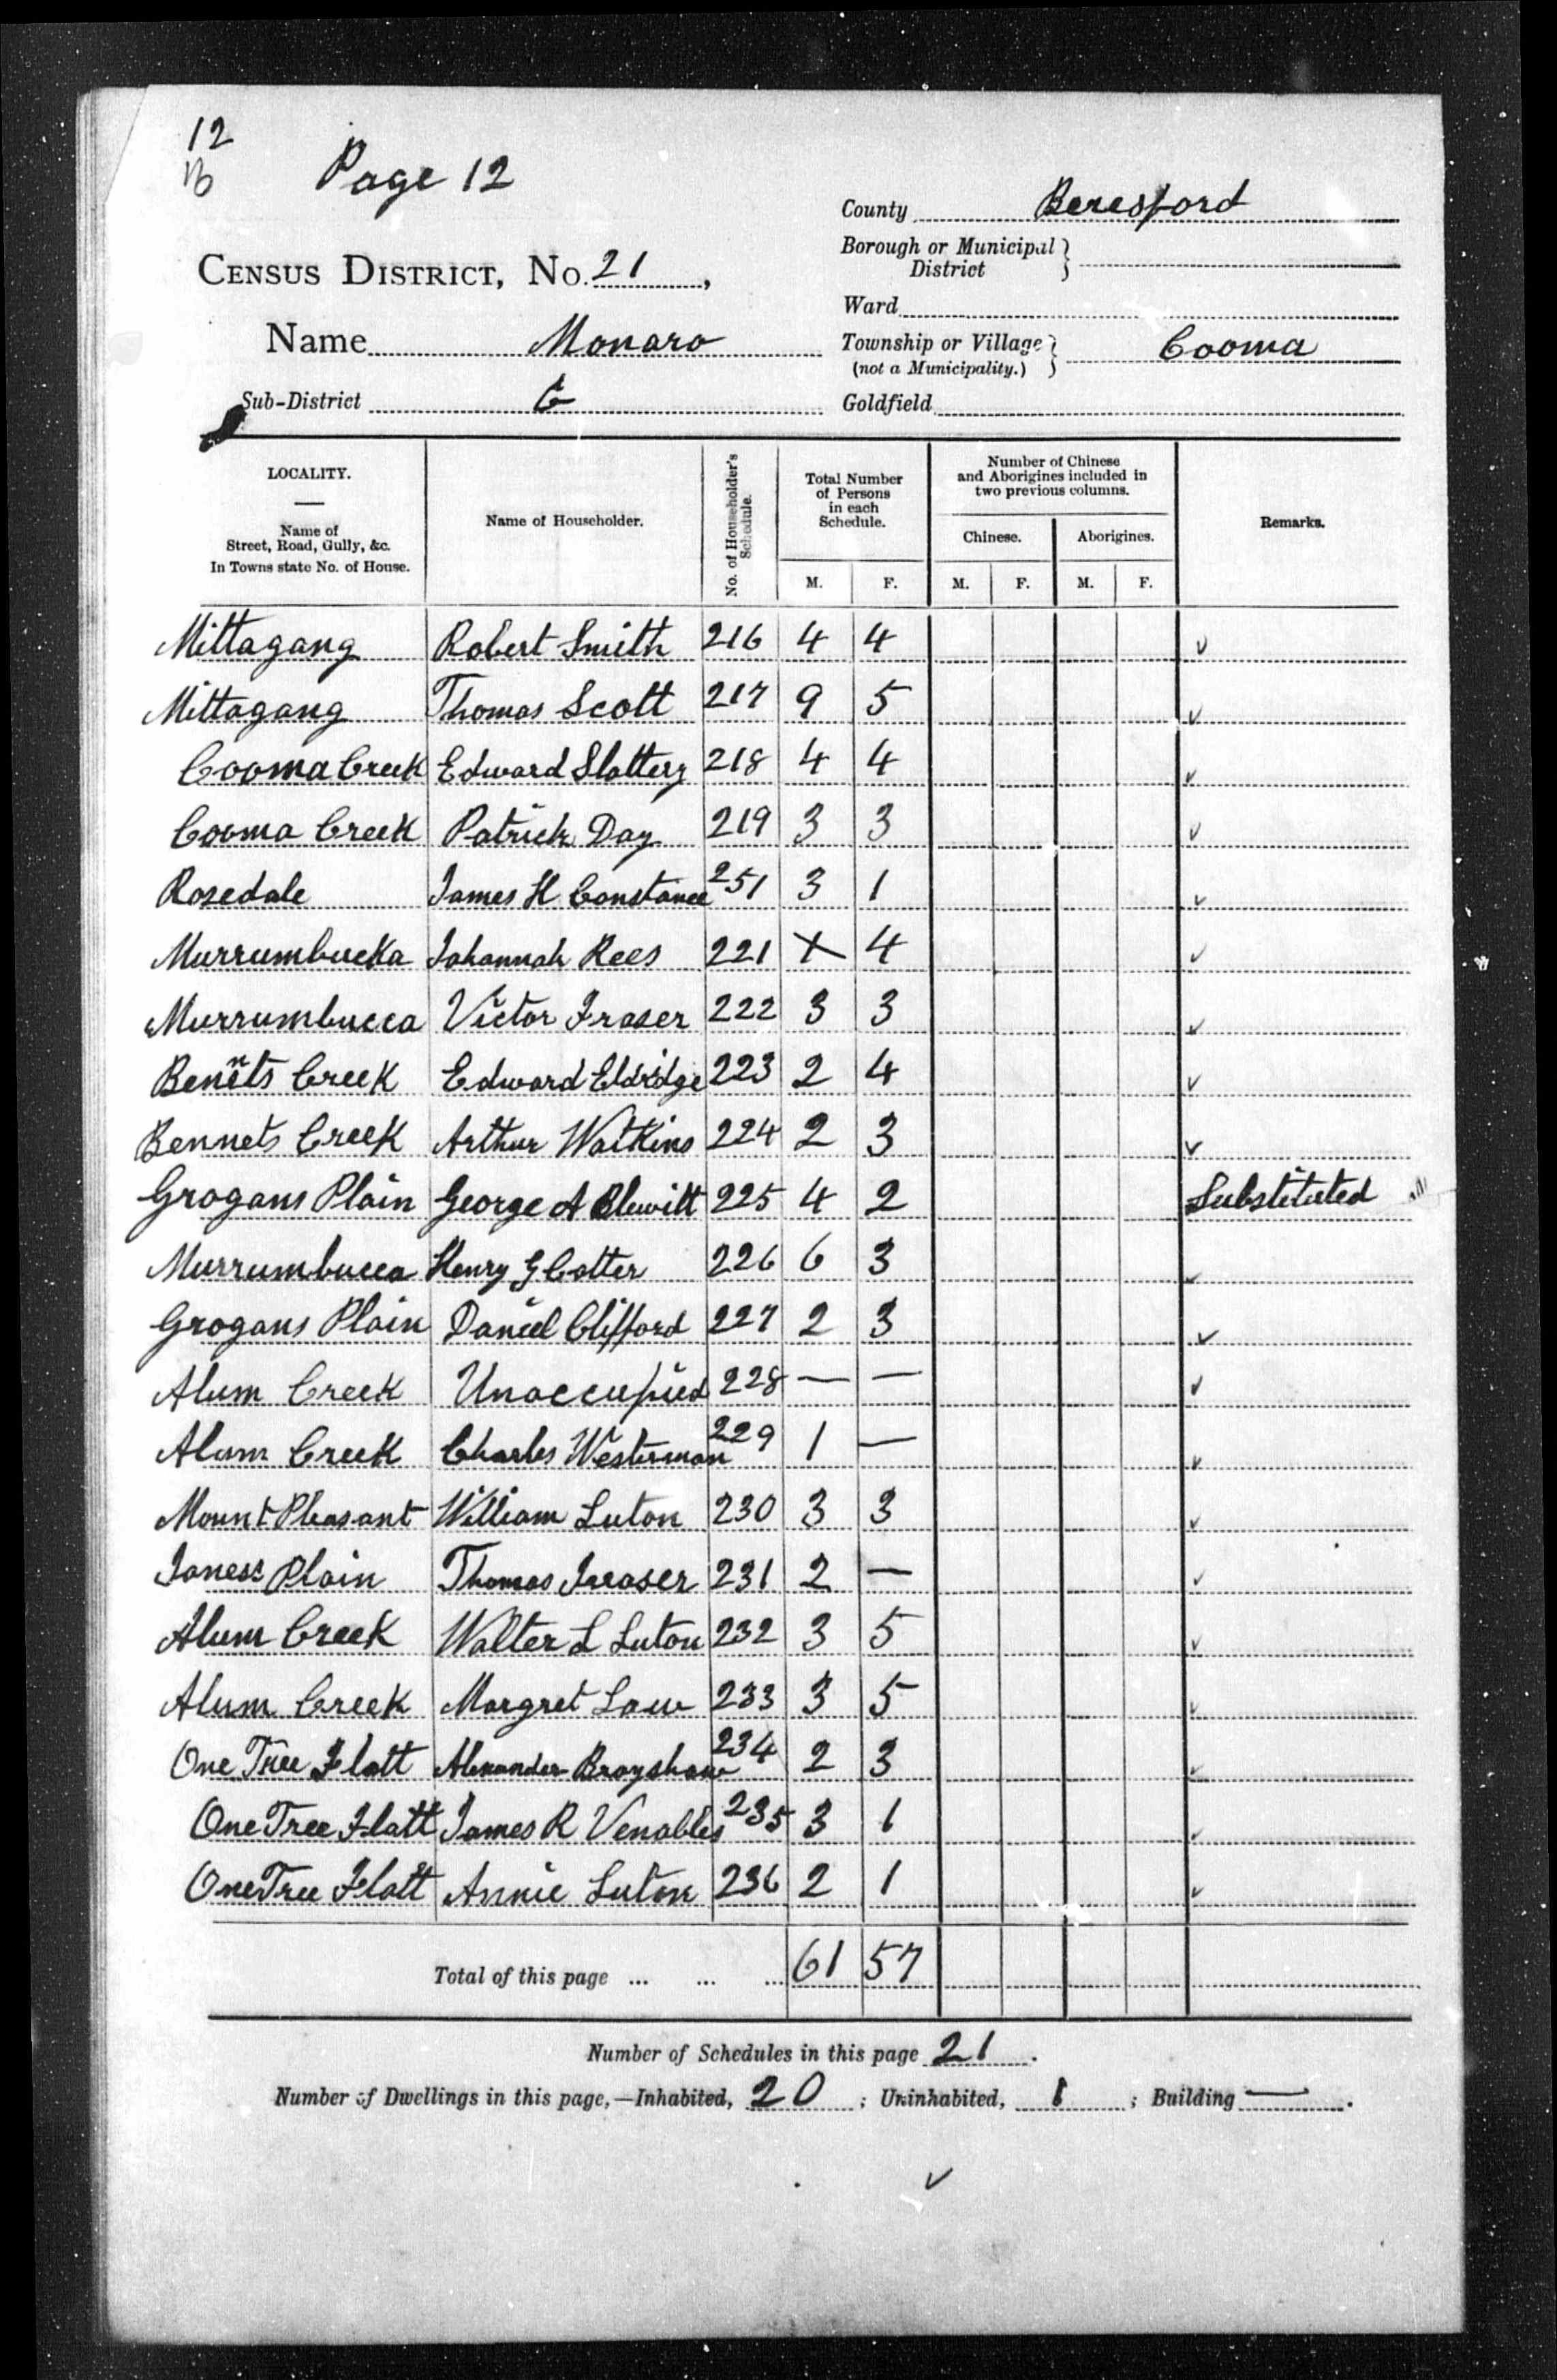 12
Page 12
County Beresford
Borough or Municipal District
CENSUS DISTRICT, No. 21,
Ward
Name Monaro
Township or Village (not a Municipality.) Cooma
Sub-District G
Goldfield
LOCALITY.
Name of Street, Road, Gully, &c.
In Towns state No. of House.
Name of Householder.
No. of Householder's Schedule.
Total Number of Persons in each Schedule.
Number of Chinese and Aborigines included in two previous columns.
Chinese. Aborigines.
Remarks.
M. F. M. F. M. F.
Mittagang Robert Smith 216 4 4 ✓
Mittagang Thomas Scott 217 9 5 ✓
Cooma Creek Edward Slattery 218 4 4 ✓
Cooma Creek Patrick Day 219 3 3 ✓
Rosedale James H Constance 251 3 1 ✓
Murrumbucka Johannah Rees 221 X 4 ✓
Murrumbucca Victor Fraser 222 3 3 ✓
Bennets Creek Edward Eldridge 223 2 4 ✓
Bennets Creek Arthur Watkins 224 2 3 ✓
Grogans Plain George A Blewitt 225 4 2 Substituted
Murrumbucca Henry G Cotter 226 6 3 ✓
Grogans Plain Daniel Clifford 227 2 3 ✓
Alum Creek Unoccupied 228 — — ✓
Alum Creek Charles Westerman 229 1 — ✓
Mount Pleasant William Luton 230 3 3 ✓
Joness Plain Thomas Fraser 231 2 — ✓
Alum Creek Walter L Luton 232 3 5 ✓
Alum Creek Margret Law 233 3 5 ✓
One Tree Flatt Alexander Brayshaw 234 2 3 ✓
One Tree Flatt James R Venables 235 3 1 ✓
One Tree Flatt Annie Luton 236 2 1 ✓
Total of this page ... ... ... 61 57
Number of Schedules in this page 21.
Number of Dwellings in this page,—Inhabited, 20; Uninhabited, 1; Building —.
✓